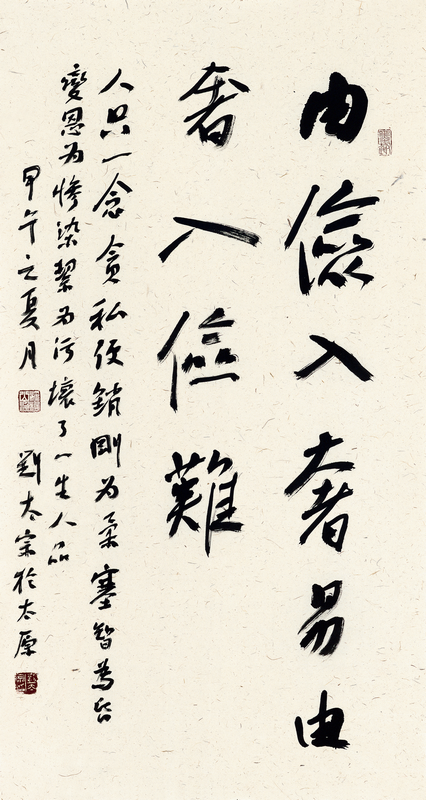 由儉入奢易由
奢入儉難
人只一念貪私便銷剛为柔塞智為昏
變恩为慘染絜为污壞了一生人品
甲午之夏月 劉太宗於太原